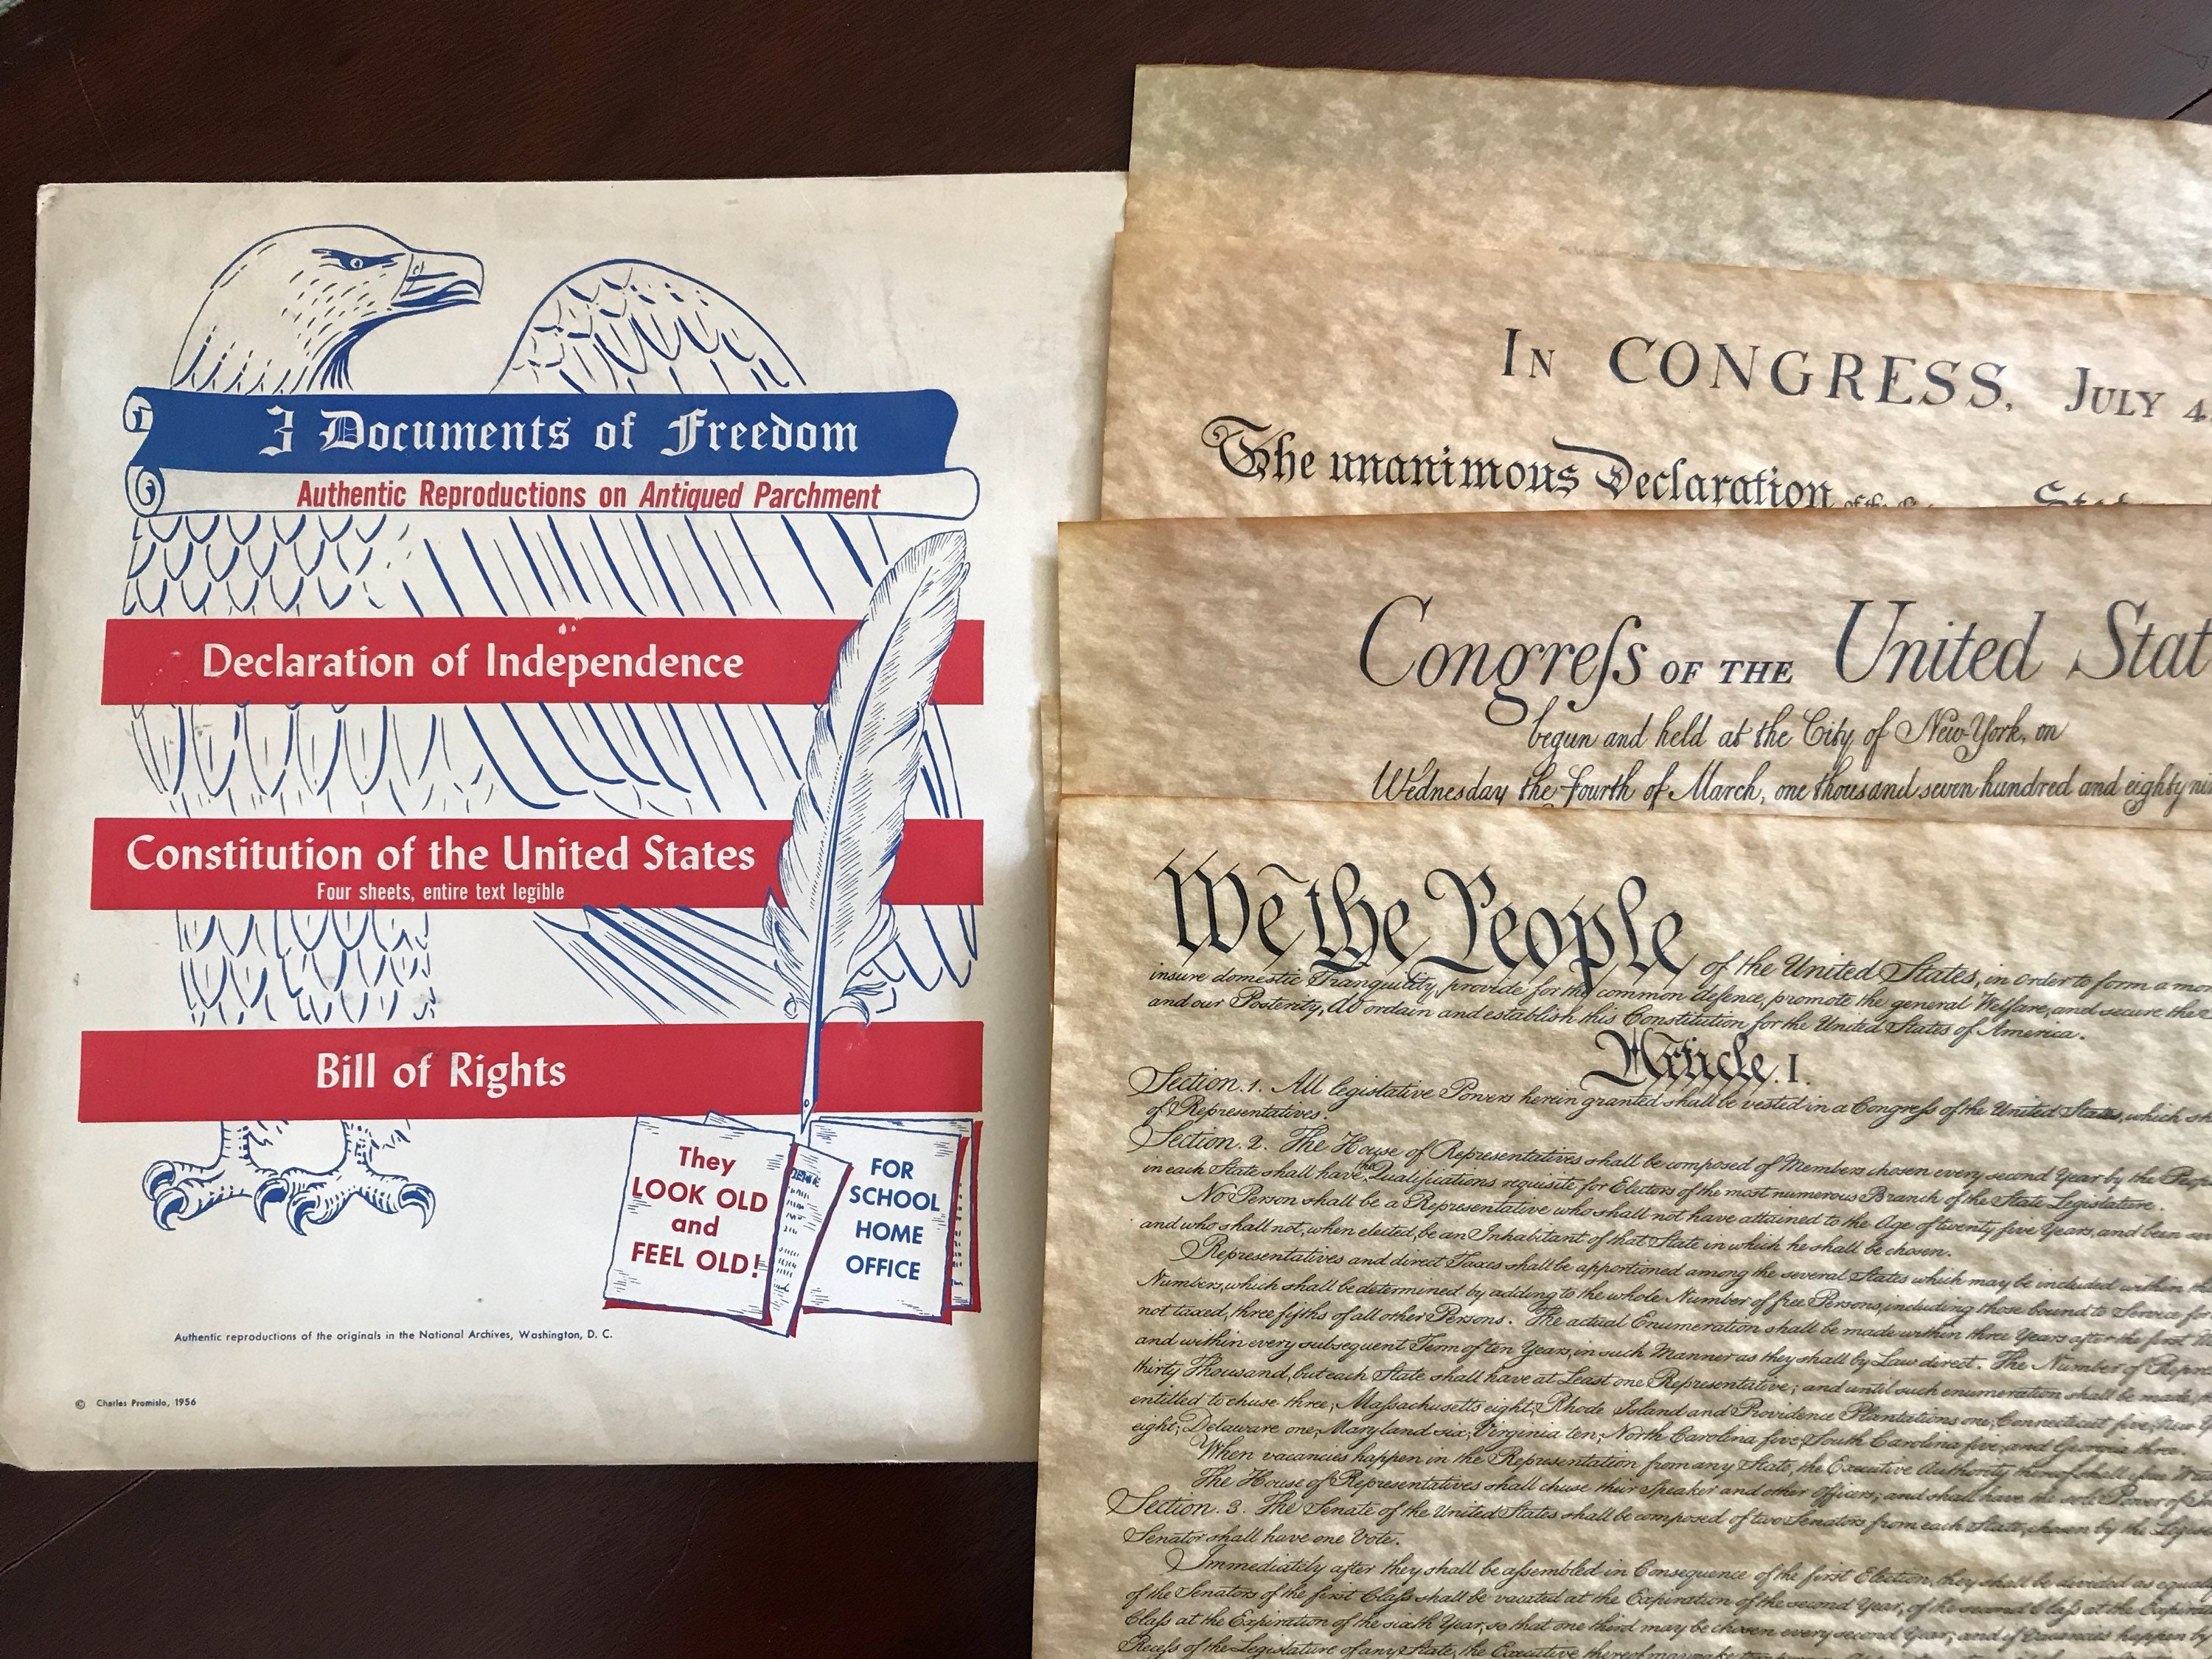 3 Documents of Freedom
Authentic Reproductions on Antiqued Parchment
Declaration of Independence
Constitution of the United States
Four sheets, entire text legible
Bill of Rights
They
LOOK OLD
and
FEEL OLD!
FOR
SCHOOL
HOME
OFFICE
Authentic reproductions of the originals in the National Archives, Washington, D. C.
© Charles Promislo, 1956
In CONGRESS, July 4
The unanimous Declaration of the
Congreſs OF THE United Stat
begun and held at the City of New-York, on
Wednesday the Fourth of March, one thousand seven hundred and eighty
We the People of the United States, in Order to form a
insure domestic Tranquility, provide for the common defence, promote the general Welfare, and secure the
and our Posterity, do ordain and establish this Constitution for the United States of America.
Article. I.
Section. 1. All legislative Powers herein granted shall be vested in a Congreſs of the United States, which
of Representatives.
Section. 2. The House of Representatives shall be composed of Members chosen every second Year by the
in each State shall have the Qualifications requisite for Electors of the most numerous Branch of the State Legislature.
No Person shall be a Representative who shall not have attained to the Age of twenty five Years, and been
and who shall not, when elected, be an Inhabitant of that State in which he shall be chosen.
Representatives and direct Taxes shall be apportioned among the several States which may be included within
Numbers, which shall be determined by adding to the whole Number of free Persons, including those bound to Service for
not taxed, three fifths of all other Persons. The actual Enumeration shall be made within three Years after the first
and within every subsequent Term of ten Years, in such Manner as they shall by Law direct. The Number of
thirty Thousand, but each State shall have at Least one Representative; and until such enumeration shall be made,
entitled to chuse three, Maſsachusetts eight, Rhode Island and Providence Plantations one, Connecticut five, New
eight, Delaware one, Maryland six, Virginia ten, North Carolina five, South Carolina five, and Georgia three.
When vacancies happen in the Representation from any State, the Executive Authority thereof shall iſsue
The House of Representatives shall chuse their Speaker and other Officers; and shall have the sole Power of
Section. 3. The Senate of the United States shall be composed of two Senators from each State, chosen by the
Senator shall have one Vote.
Immediately after they shall be aſsembled in Consequence of the first Election, they shall be divided as
of the Senators of the first Claſs shall be vacated at the Expiration of the second Year, of the second Claſs at the
Claſs at the Expiration of the sixth Year, so that one third may be chosen every second Year; and if Vacancies happen by
Receſs of the Legislature of any State, the Executive thereof may make